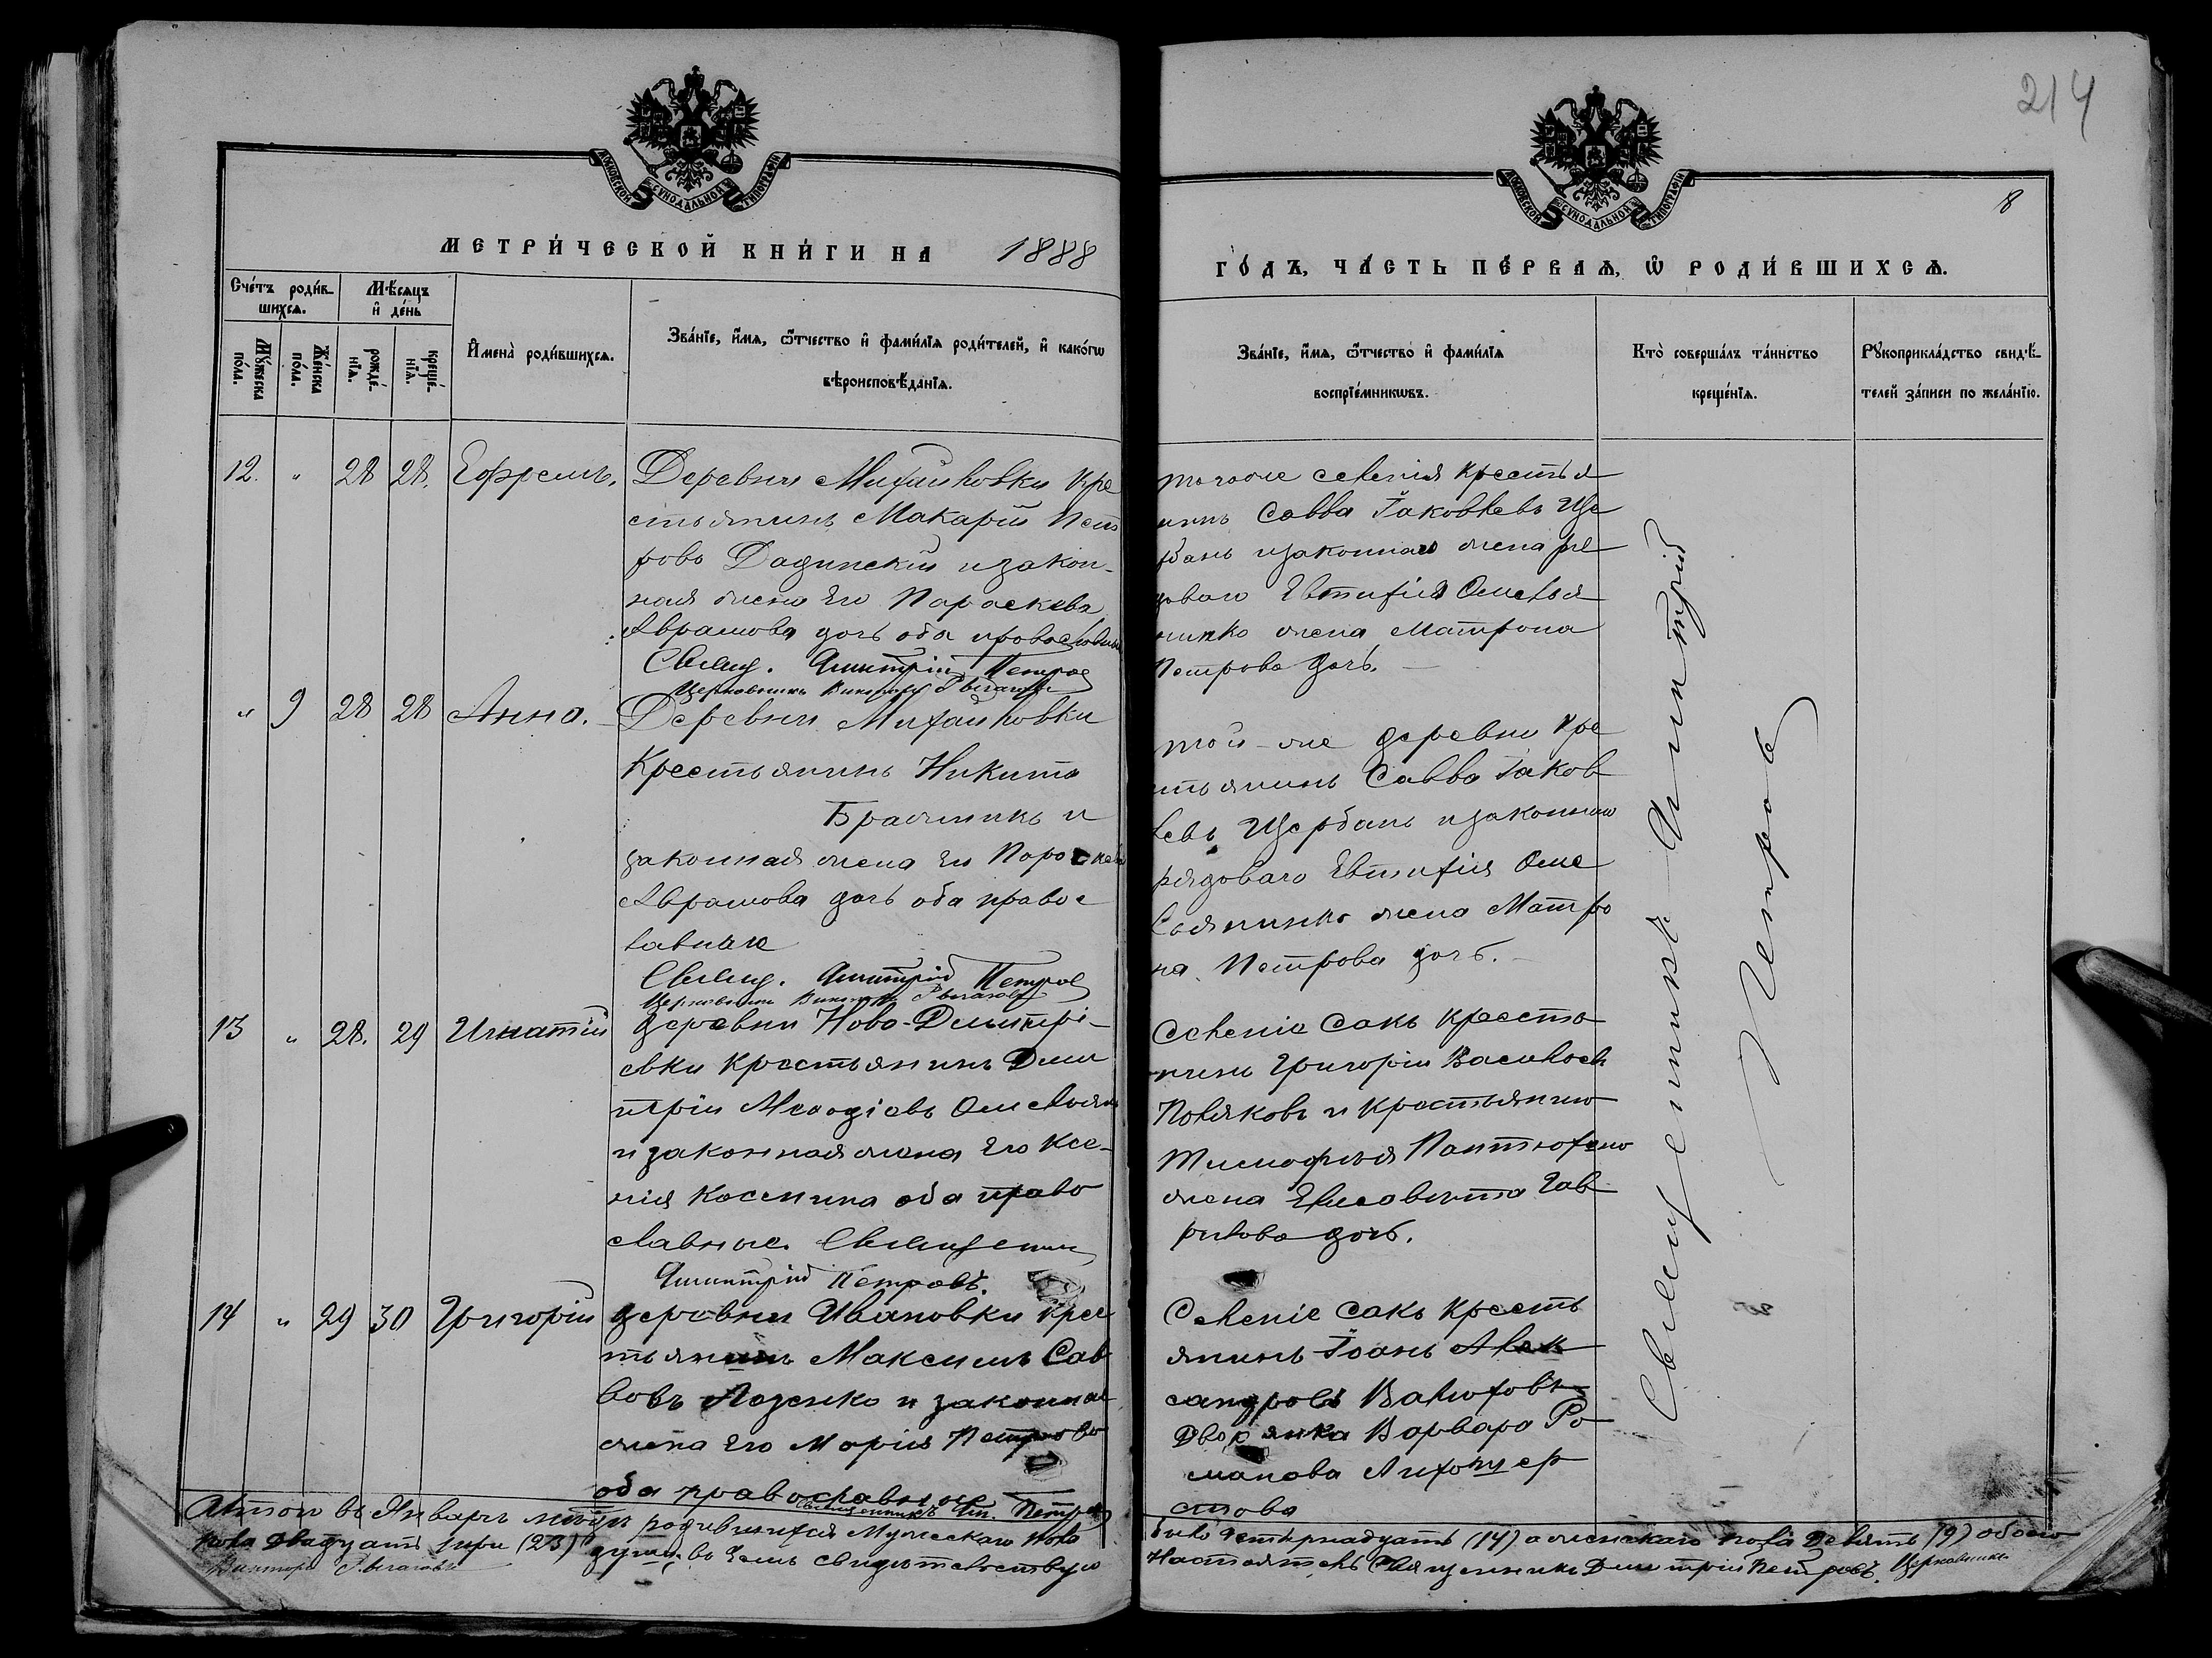 214
8
МОСКОВСКОЙ СѴНОДАЛЬНОЙ ТИПОГРАФІИ
МОСКОВСКОЙ СѴНОДАЛЬНОЙ ТИПОГРАФІИ
МЕТРИ́ЧЕСКОЙ КНИ́ГИ НА 1888
ГО́ДЪ, ЧА́СТЬ ПЕ́РВАѦ, Ѡ҆ РОДИ́ВШИХСѦ.
Сче́тъ роди́в-
шихсѧ.
Мѣ́сяцъ
и҆ де́нь
Му́жеска по́ла.
Же́нска по́ла.
рожде́-нїѧ.
креще́-нїѧ.
И҆мена̀ роди́вшихсѧ.
Зва́нїе, и҆́мѧ, ѻ҆́тчество и҆ фами́лїѧ роди́телей, и҆ како́гѡ
вѣроисповѣ́данїѧ.
Зва́нїе, и҆́мѧ, ѻ҆́тчество и҆ фами́лїѧ
воспрїе́мникѡвъ.
Кто̀ соверша́лъ та́инство
креще́нїѧ.
Рꙋкоприкла́дство свидѣ́-
телей за́писи по жела́нїю.
12. " 28 28. Ефремъ. Деревни Михайловки кре
стьянинъ Макарій Пет
ровъ Дадинскій и закон-
ная жена его Параскева
Аврамова дочь оба православные
Священ. Димитрій Петров
Церковникъ Викторъ
того же селенія крестья
нинъ Савва Іаковлевъ Ще
рбань и законная жена ря
доваго Евтифія Омелья
ненко жена Матрона
Петрова дочь.
" 9 28 28 Анна. Деревни Михайловки
Крестьянинъ Никита
Бражникъ и
законная жена его Параскева
Аврамова дочь оба правос
лавные
Священ. Димитрій Петров
Церковникъ Викторъ
той-же деревни кре
стьянинъ Савва Іаков
левъ Щербань и законная
рядоваго Евтифія Оме
льяненко жена Матро
на Петрова дочь.
13 " 28. 29 Игнатій деревни Ново-Дмитрі-
евки крестьянинъ Дми
трій Меѳодіевъ Омельян
и законная жена его Ксе-
нія Космина оба право
славные. Священник
Димитрій Петровъ.
Селенія Сакъ крестья
нинъ Григорій Васильев
Поляковъ и крестьянина
Тимофея Пантюхина
жена Елисавета Гав
рилова дочь.
14 " 29 30 Григорій деревни Ивановки крес
тьянинъ Максимъ Сав
вовъ Лозенко и законная
жена его Марія Петрова
оба православные
Священникъ Дм. Петров
Селенія Сакъ кресть
янинъ Іоанъ Алек
сандровъ Валюховъ
Дворянка Варвара Ро
манова Лихошер
стова
Священникъ Димитрій
Петров
Итого въ Январѣ мѣсяцѣ родившихся Мужескаго пола
было четырнадцать (14) а женскаго пола девять (9) обоего
пола двадцать три (23) души, въ чемъ свидѣтельствую
Настоятель Священникъ Дмитрій Петровъ. Церковникъ
Викторъ